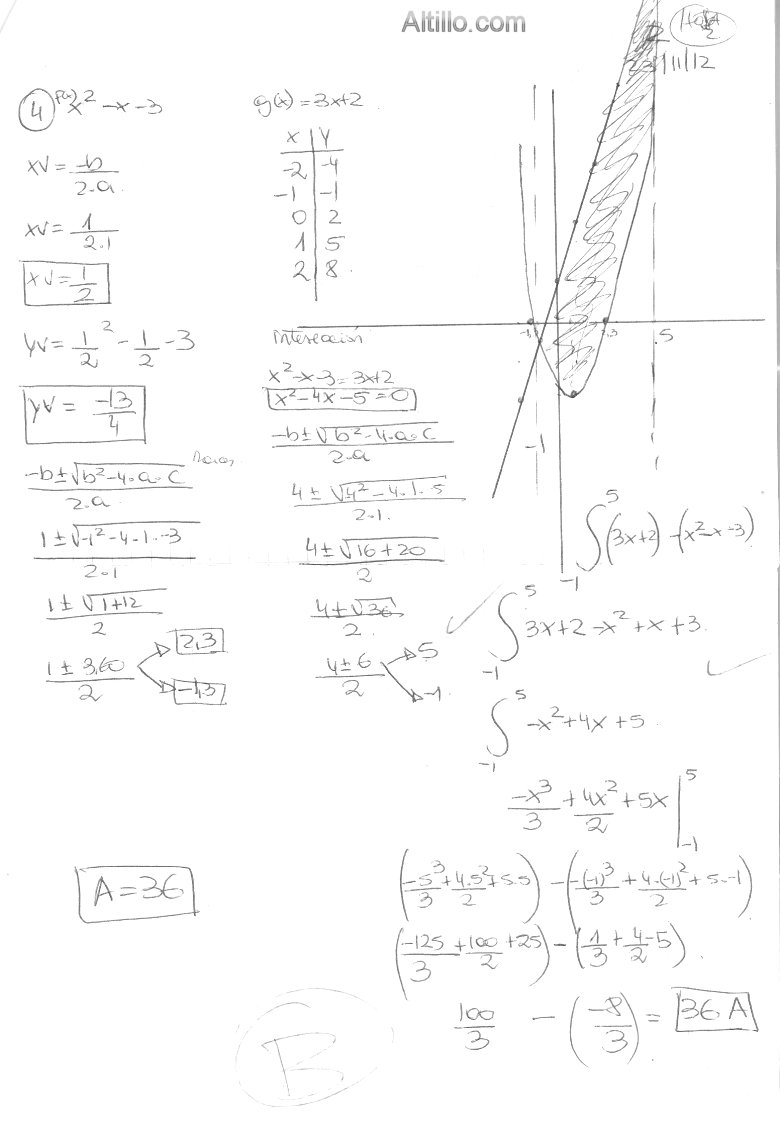 Altillo.com
Hoja 2
23/11/12
4 f(x) x² - x - 3
xv = -b / 2.a
xv = 1 / 2.1
xv = 1/2
yv = 1/2² - 1/2 - 3
yv = -13/4
-b ± √b² - 4.a.c / 2.a
1 ± √-1² - 4.1.-3 / 2.1
1 ± √1+12 / 2
1 ± 3,60 / 2
2,3
-1,3
g(x) = 3x+2
x | y
-2 | -4
-1 | -1
0 | 2
1 | 5
2 | 8
Intersección
x² - x - 3 = 3x + 2
x² - 4x - 5 = 0
-b ± √b² - 4.a.c / 2.a
4 ± √4² - 4.1.5 / 2.1.
4 ± √16 + 20 / 2
4 ± √36 / 2.
4 ± 6 / 2
5
-1
2,3
.5
-1
∫ 5 -1 (3x+2) - (x² - x - 3)
∫ 5 -1 3x + 2 - x² + x + 3.
∫ 5 -1 -x² + 4x + 5.
-x³/3 + 4x²/2 + 5x | 5 -1
(-5³/3 + 4.5²/2 + 5.5) - (-(-1)³/3 + 4.(-1)²/2 + 5.-1)
(-125/3 + 100/2 + 25) - (1/3 + 4/2 - 5).
100/3 - (-8/3) = 36 A
A = 36
B